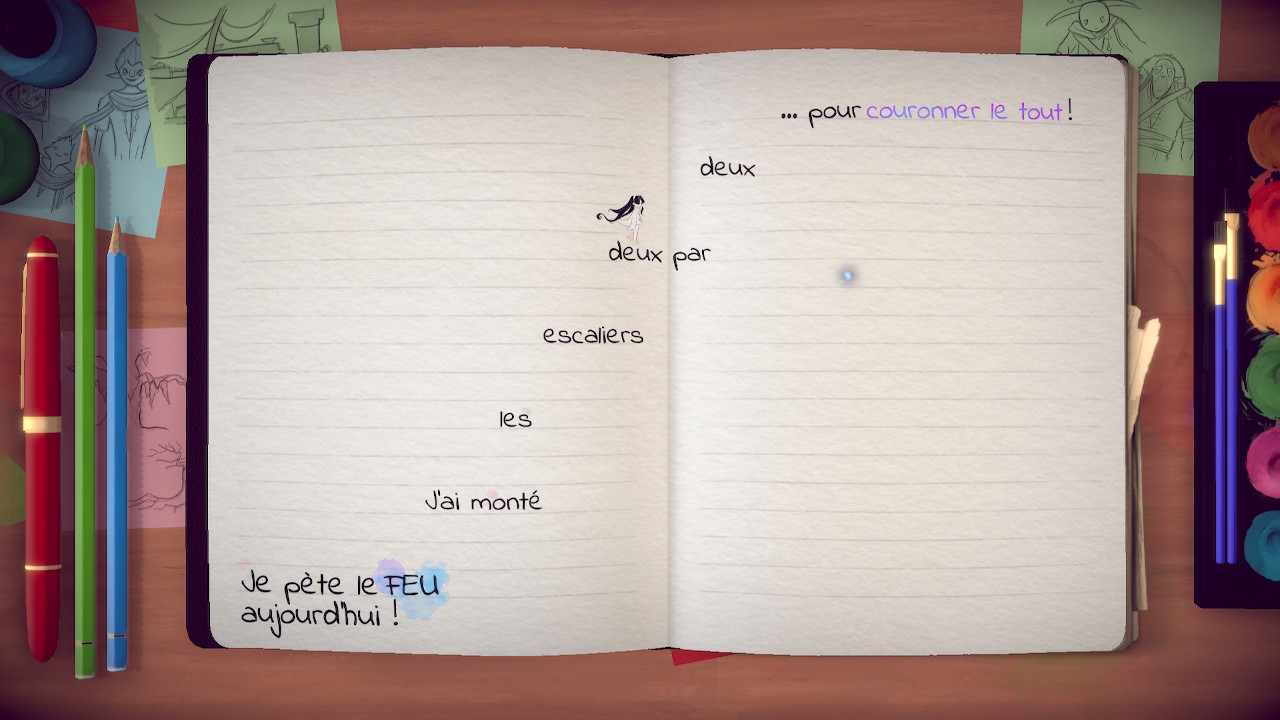 Je pète le FEU
aujourd'hui !
J'ai monté
les
escaliers
deux par
deux
... pour couronner le tout !